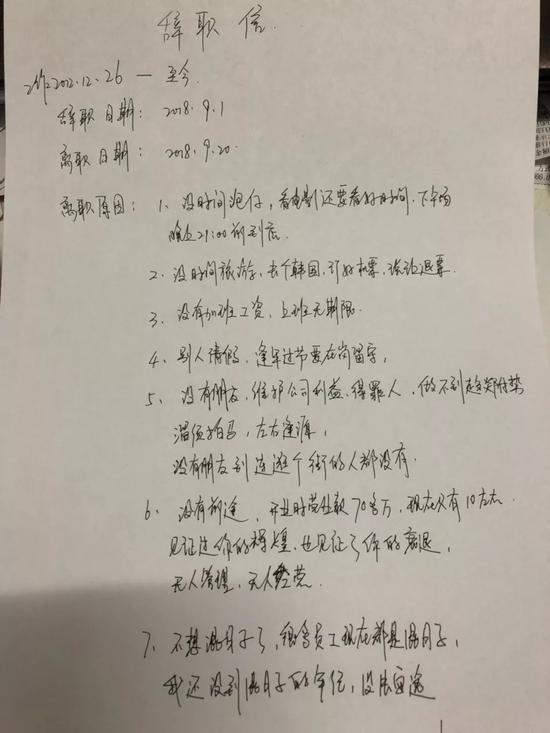 辞职信
工作2012.12.26 — 至今
辞职日期：2018.9.1
离职日期：2018.9.20
离职原因：1、没时间泡仔，看电影还要看好时间，下午场
晚上21:00前到底
2、没时间旅游，去个韩国，订好机票，
退票
3、没有加班工资，上班无期限
4、别人请假，逢年过节要在岗留守，
5、没有朋友，维护公司利益，得罪人，做不到趋炎附势
溜须拍马，左右逢源，
没有朋友到连逛个街的人都没有
6、没有前途，开业时营业款70多万，现在只有10左右
见证过你的辉煌，也见证了你的衰退，
无人管理，无人经营
7、不想混日子了，很多员工现在都是混日子，
我还没到混日子的年纪，没法